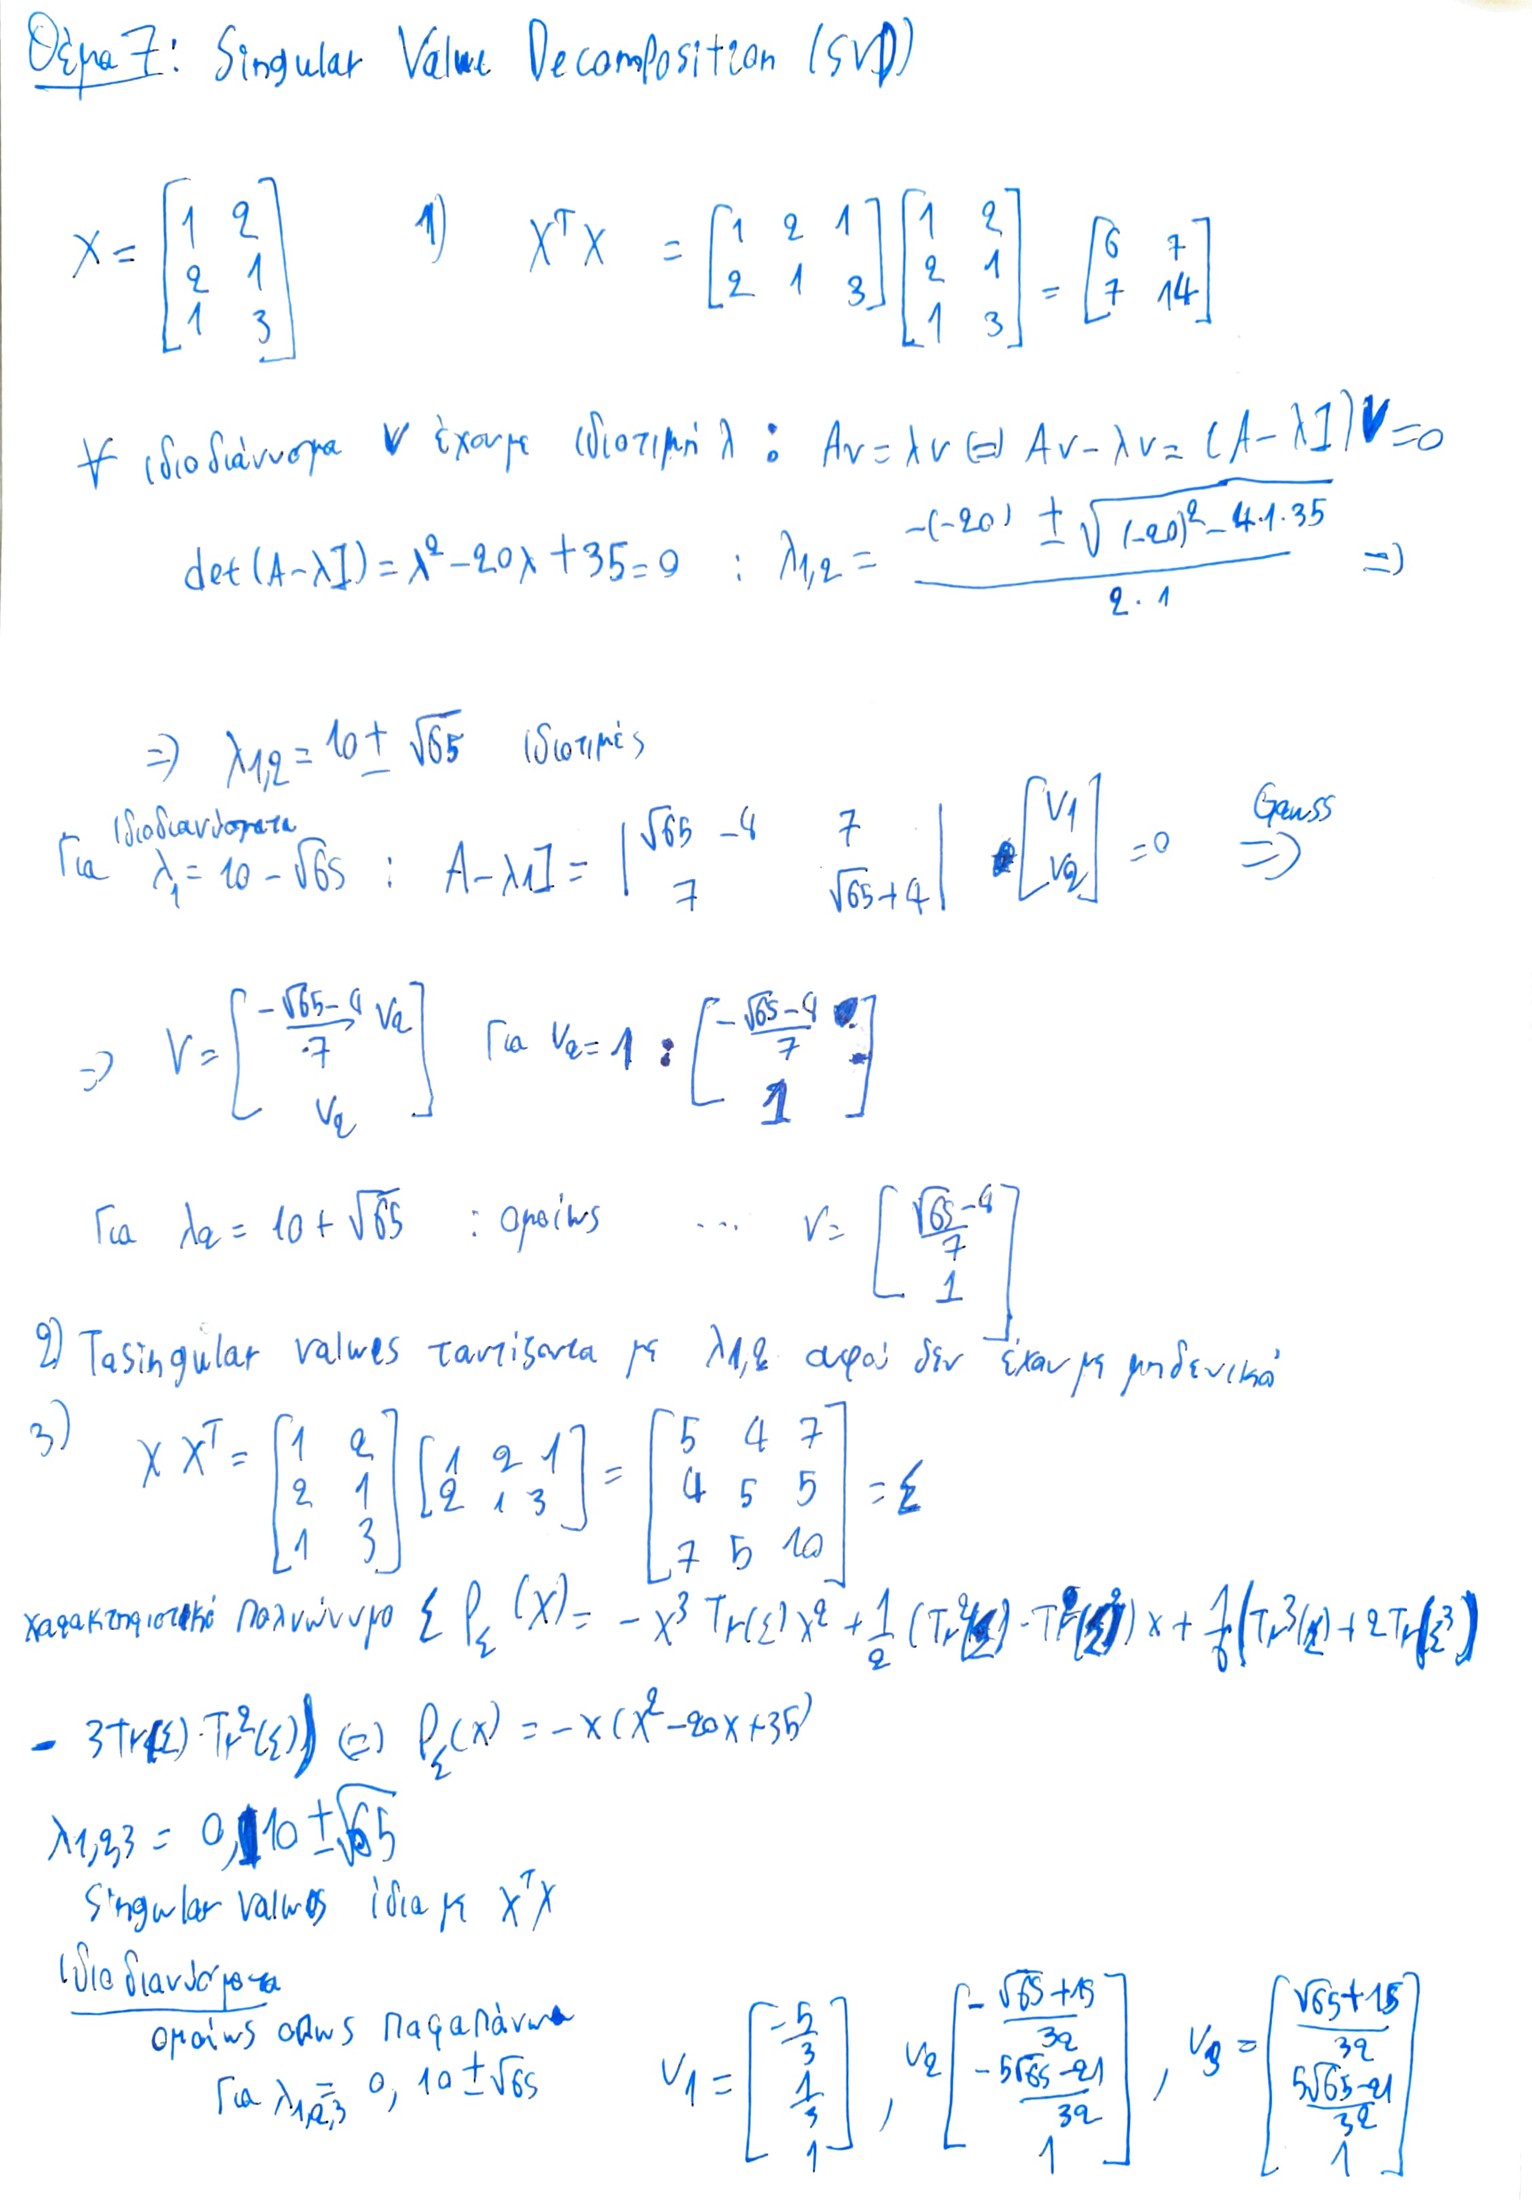 Θέμα 7: Singular Value Decomposition (SVD)
X = [1 2; 2 1; 1 3] 1) XᵀX = [1 2 1; 2 1 3] [1 2; 2 1; 1 3] = [6 7; 7 14]
∀ ιδιοδιάνυσμα v έχουμε ιδιοτιμή λ : Av = λv (=) Av - λv = (A - λI)v = 0
det(A-λI) = λ² - 20λ + 35 = 0 : λ1,2 = (-(-20) ± √((-20)² - 4·1·35)) / (2·1) =)
=) λ1,2 = 10 ± √65 ιδιοτιμές
ιδιοδιανύσματα
Για λ1 = 10 - √65 : A - λ1I = |√65 -4 7; 7 √65+4| · [v1; v2] = 0 Gauss =)
=) v = [-(√65-4)/7 v2; v2] Για v2 = 1 : [-(√65-4)/7; 1]
Για λ2 = 10 + √65 : ομοίως ... v = [(√65-4)/7; 1]
2) Τα singular values ταυτίζοντα με λ1,2 αφού δεν έχουμε μηδενικό
3) X Xᵀ = [1 2; 2 1; 1 3] [1 2 1; 2 1 3] = [5 4 7; 4 5 5; 7 5 10] = Σ
χαρακτηριστικό πολυώνυμο Σ P_Σ(x) = -x³ Tr(Σ)x² + 1/2 (Tr²(Σ) - Tr(Σ²)) x + 1/6 (Tr³(Σ) + 2Tr(Σ³)
- 3Tr(Σ)·Tr²(Σ)) (=) P_Σ(x) = -x(x² - 20x + 35)
λ1,2,3 = 0, 10 ± √65
Singular values ίδια με XᵀX
ιδιοδιανύσματα
ομοίως όπως παραπάνω
Για λ1,2,3 = 0, 10 ± √65 v1 = [-5/3; 1/3; 1], v2 [(-√65+15)/32; (-5√65-21)/32; 1], v3 = [(√65+15)/32; (5√65-21)/32; 1]